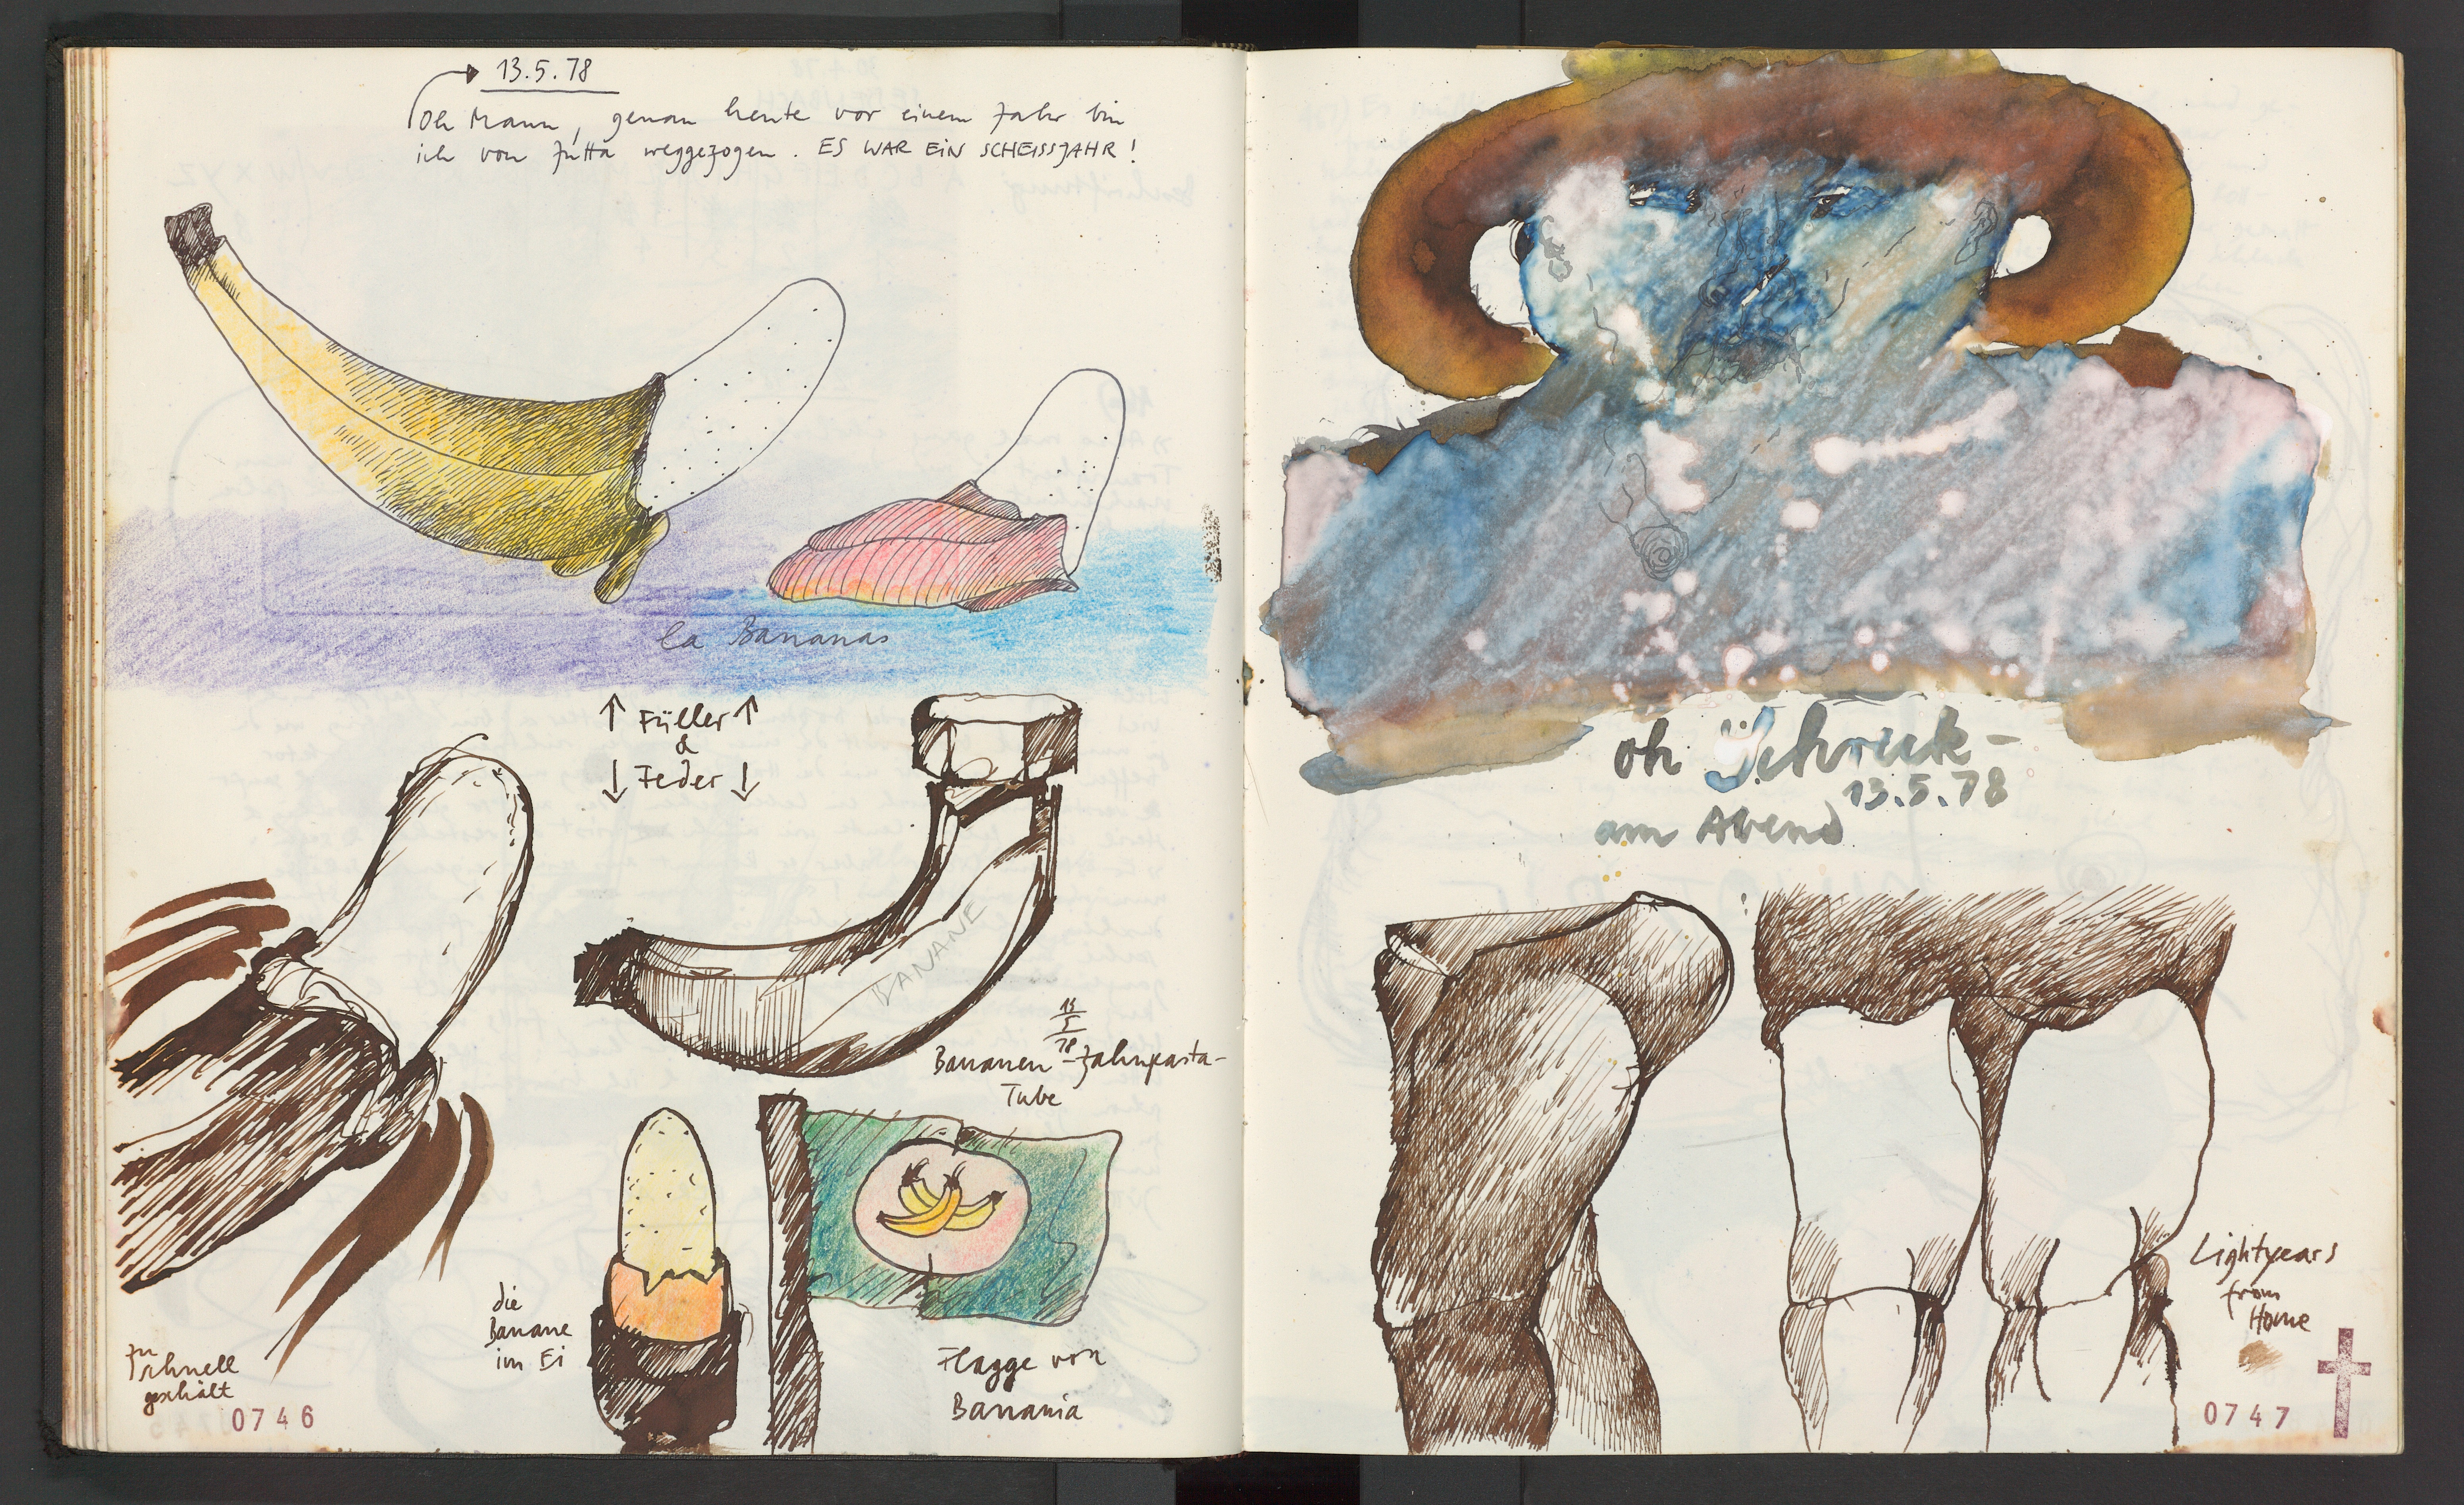 13.5.78
Oh Mann, genau heute vor einem Jahr bin
ich von Jutta weggezogen. ES WAR EIN SCHEISSJAHR!
la Bananas
↑ Füller ↑
&
↓ Feder ↓
BANANE
13
5
78
Bananen-Zahnpasta-
Tube
zu
schnell
geschält
die
Banane
im Ei
Flagge von
Banania
0746
oh Schreck-
13.5.78
am Abend
Lightyears
from
Home
0747